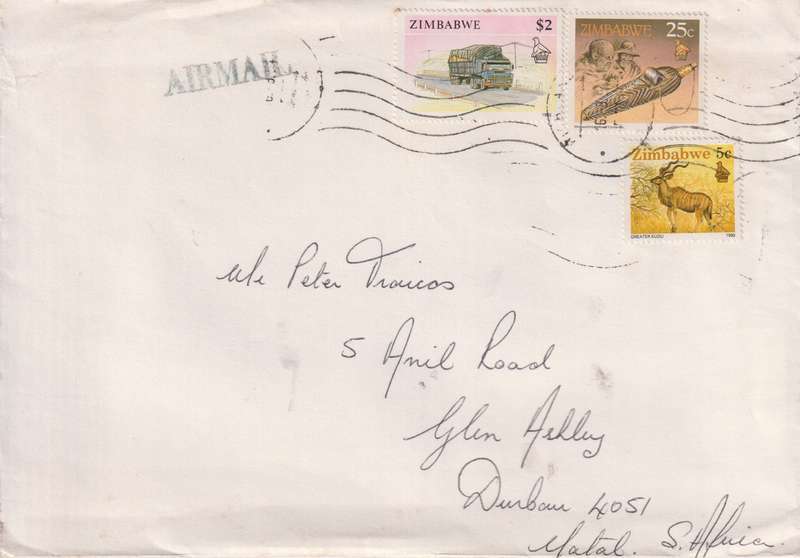 AIRMAIL
ZIMBABWE $2
ZIMBABWE 25c
Zimbabwe 5c
GREATER KUDU 1990
Mr Peter Traicos
5 Anil Road
Glen Ashley
Durban 4051
Natal. S. Africa.